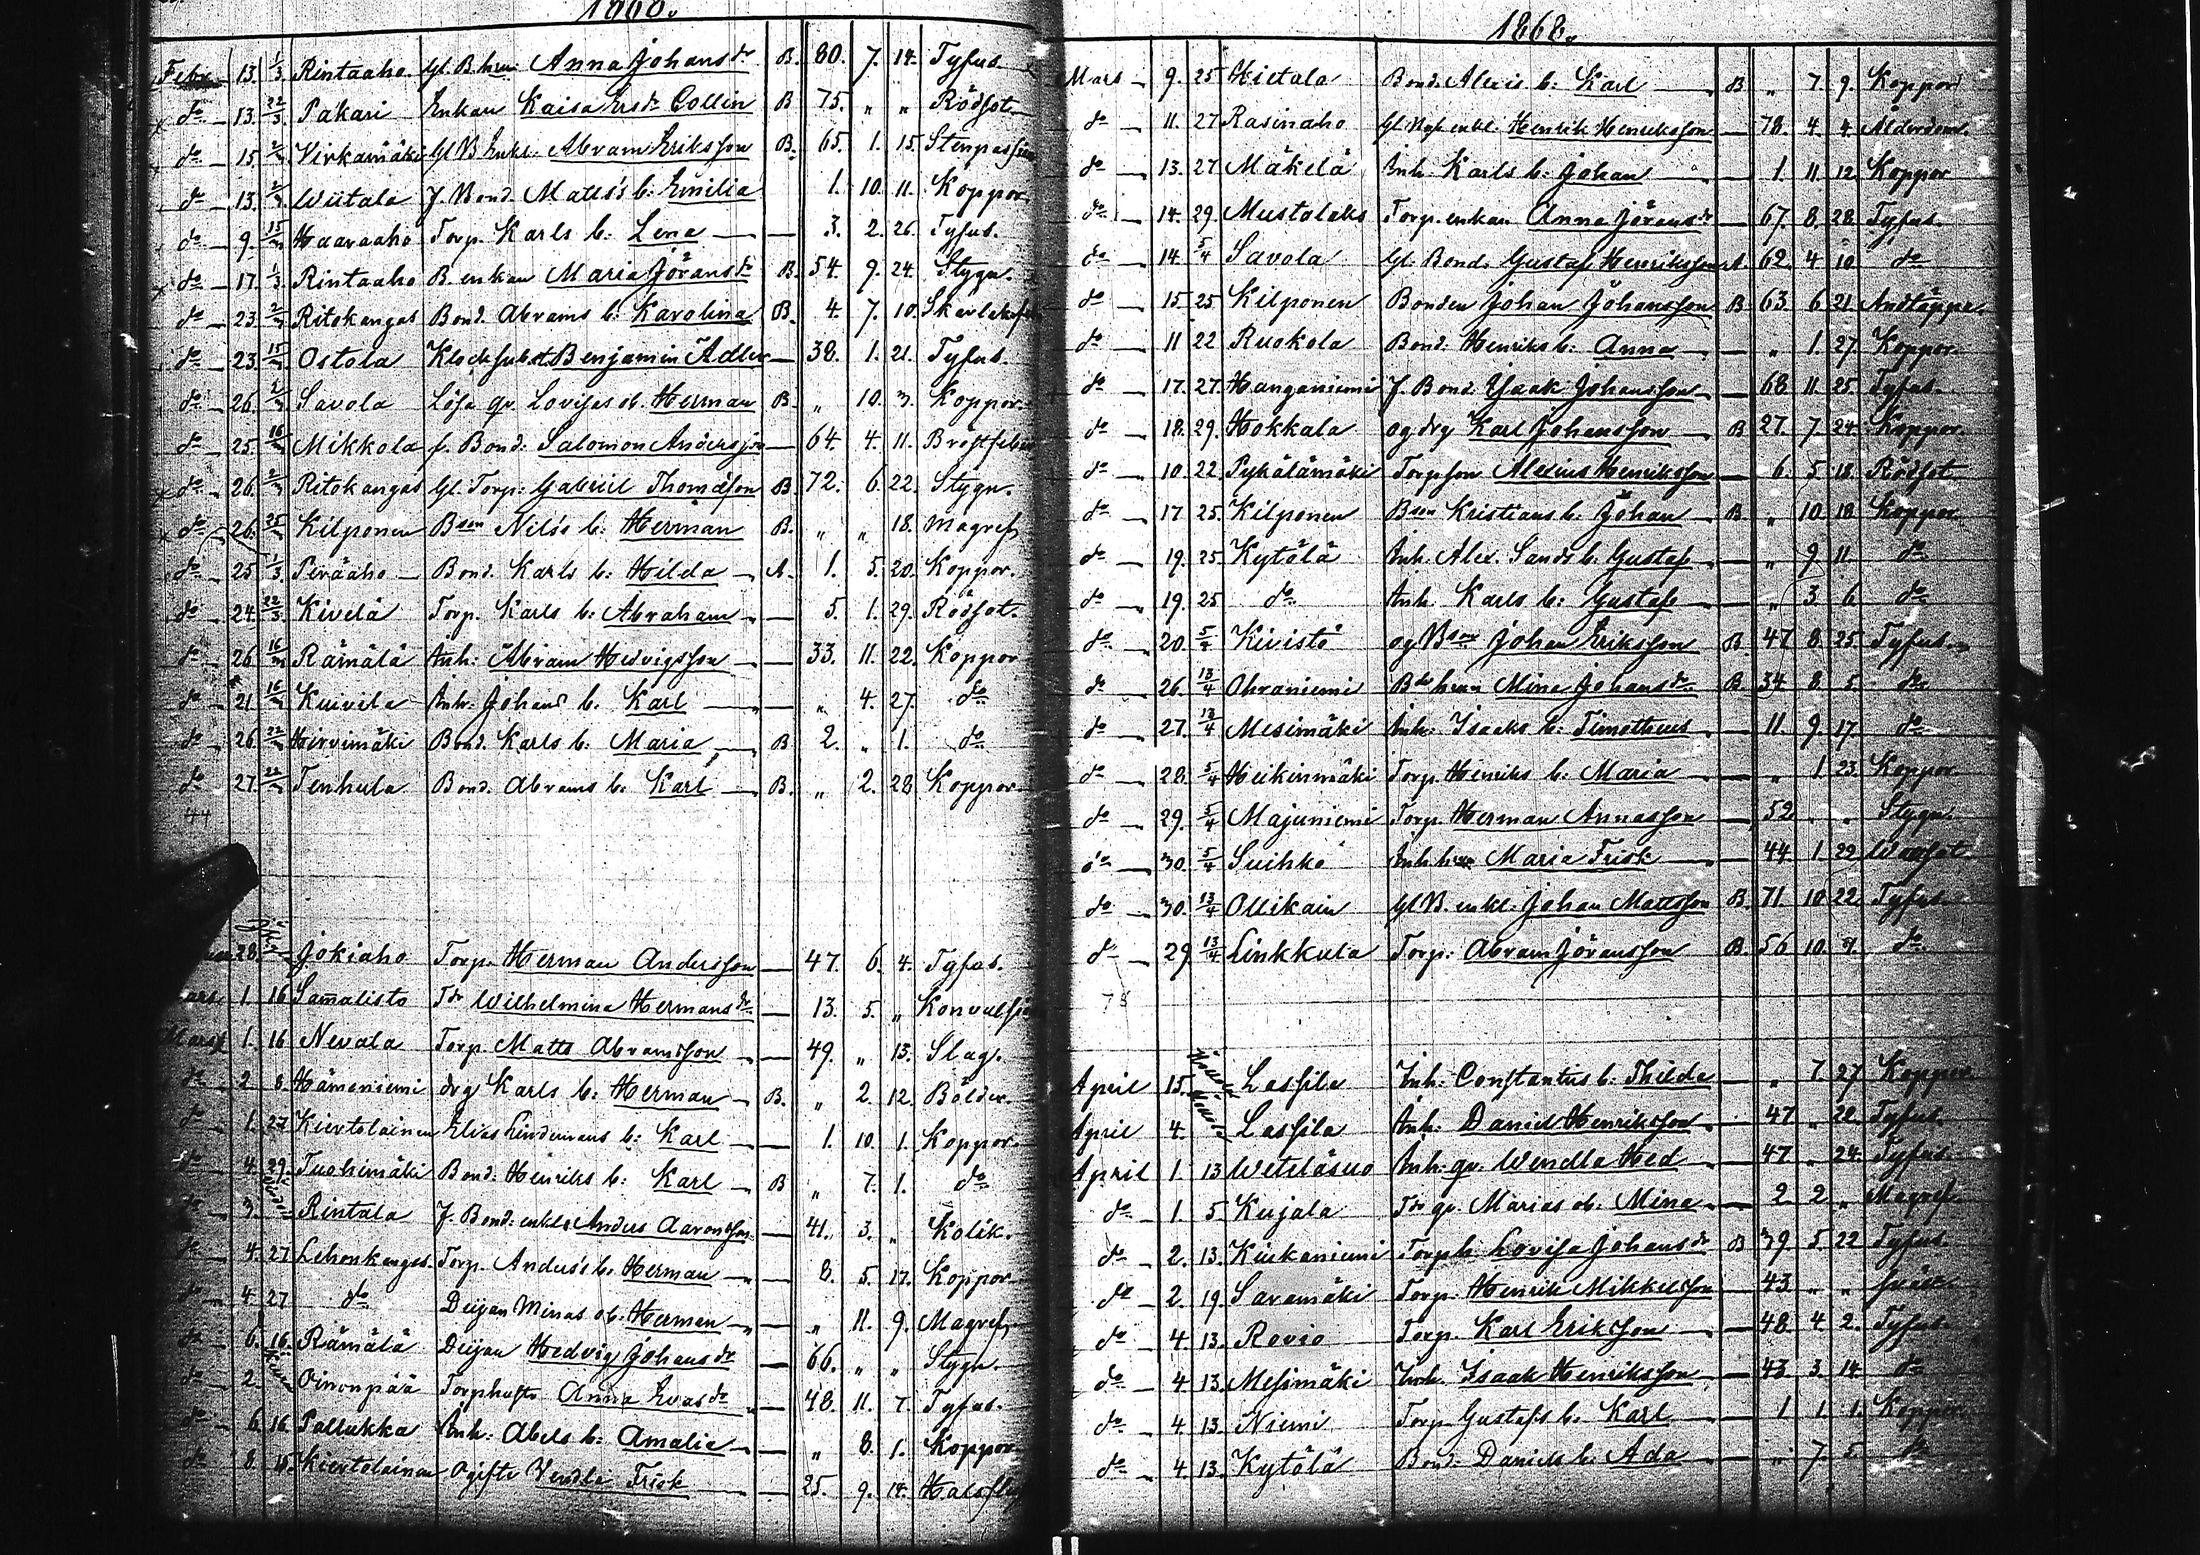 1868.
Febr. 13. 1/3 Rintaaho Gl. B. hru Anna Johansdr B. 80. 7. 14. Tyfus.
do 13. 22/3 Pakari Enkan Kaisa Ersdr Collin B 75. " " Rödsot.
do 15. 2/3 Virkamäki Gl. B. Enkl. Abram Eriksson B. 65. 1. 15.
do 13. 2/3 Wiitala f. Bond. Matts's b: Emilia 1. 10. 11. Koppor.
do 9. 15/3 Haaraaho Torp. Karls b. Lena — 3. 2. 26. Tyfus.
do 17. 1/3 Rintaaho B. enkan Maria Jöransdr B. 54. 9. 24. Stygn.
do 23. 2/3 Ritokangas Bond. Abrams b: Karolina B. 4. 7. 10.
do 23. 15/3 Ostola Benjamin Adler — 38. 1. 21. Tyfus.
do 26. 2/3 Savola Lösa qv. Lovisas ob. Herman B. " 10. 3. Koppor.
do 25. 16/3 Mikkola f. Bond. Salomon Andersson — 64. 4. 11. Bröstfeber
do 26. 2/3 Ritokangas Gl. Torp: Gabriel Thomasson B. 72. 6. 22. Stygn.
do 26. 25/3 Kilponen Bson Nels's b: Herman B. " " 18. Magref
do 25. 1/3 Peräaho Bond. Karls b: Hilda A. 1. 5. 20. Koppor.
do 24. 22/3 Kivelä Torp. Karls b: Abraham — 5. 1. 29. Rödsot.
do 26 16/3 Rämälä Inh: Abram Hedvigsson — 33. 11. 22. Koppor
do 21 16/3 Kuivila Inh. Johans b. Karl — " 4. 27. do
do 26. 22/3 Hirvimäki Bond. Karls b: Maria B 2. " 1. do
do 27. 22/3 Tenhula Bond. Abrams b. Karl B. " 2. 28 Koppor.
44
28. Jokiaho Torp. Herman Andersson — 47. 6. 4. Tyfus.
Mars 1. 16 Samalisto Tdr Wilhelmina Hermansdr — 13. 5. " Konvulsion
Mars 1. 16 Nevala Torp. Matts Abramsson — 49. " 13. Slag.
do 2 8. Hämeniemi drg Karls b: Herman B. " 2. 12. Bölder.
do 1. 27 Kiertolainen Elias Lindemans b: Karl — 1. 10. 1. Koppor.
do 4. 29. Tuohimäki Bond. Henriks b: Karl B " 7. 1. do
do 3. Rintala f. Bond: enkl: Anders Aaronsson — 41. 3. " Kolik.
do 4. 27 Lehonkangas. Torp. Anders's b. Herman — 8. 5. 17. Koppor
do 4. 27 do Deijan Minas ob. Herman — " 11. 9. Magref
do 6. 16. Rämälä Deijan Hedvig Johansdr — 66. " " Stygn.
do 2. Oinonpää Torphustr Anna Evasdr — 48. 11. 7. Tyfus.
do 6. 16 Pallukka Inh: Abels b: Amalie — " 8. 1. Koppor
do 8. 15. Kiertolainen Ogifte Vendla Frisk — 25. 9. 14.
1868.
Mars 9. 25. Hietala Bond. Alexis b: Karl B " 7. 9. Koppor
do 11. 27 Rasinaho Henrik Henriksson — 78. 4. 4. Ålderdom.
do 13. 27 Mäkelä Inh. Karls b: Johan — 1. 11. 12. Koppor
do 14. 29. Mustalaks Torp. enkan Anna Jöransdr — 67. 8. 28. Tyfus.
do 14. 5/4 Savola Gl. Bond. Gustaf Henriksson A. 62. 4 10 do
do 15. 25 Kilponen Bonden Johan Johansson B 63. 6 21. Andtäppa.
do 11 22 Ruokola Bond. Henriks b: Anna — " 1. 27. Koppor.
do 17. 27. Hanganiemi f. Bond. Isaak Johansson — 68. 11. 25. Tyfus.
do 18. 29. Hokkala og drg Karl Johansson B 27. 7. 24. Koppor.
do 10. 22. Pyhälämäki Torpson Alexius Henriksson — 6. 5 18. Rödsot
do 17 25. Kilponen Bson Kristians b. Johan B. " 10 18. Koppor
do 19. 25 Kytölä Inh. Alex. Sands b. Gustaf — " 9. 11. do
do 19. 25 do Inh. Karls b: Gustaf — " 3. 6 do
do 20. 5/4 Kivistö og Bson Johan Eriksson B 47 8. 25. Tyfus.
do 26. 13/4 Ohraniemi Mina Johansdr B. 34. 8. 5. do
do 27. 13/4 Mesimäki Inh: Isaaks b: Timotheus — 11. 9. 17. do
do 28. 5/4 Heikinmäki Torp. Henriks b: Maria — " 1 23. Koppor
do 29. 5/4 Majuniemi Torp. Herman Annasson — 52 " " Stygn
do 30. 5/4 Suihko Inh hru Maria Frisk — 44 1 29
do 30. 13/4 Ollikain Gl B. enkl: Johan Mattsson B. 71. 10 22. Tyfus.
do 29 13/4 Linkkula Torp: Abram Jöransson B. 56 10. 9. do
April 15. Lassila Inh: Constantus b: Thilda — " 7. 27 Koppor
April 4. Lassila Inh: Daniel Henriksson — 47 " 22. Tyfus.
April 1. 13 Weteläsuo Inh: qv. Wendla Hed — 47 " 24. Tyfus.
do 1. 5. Kujala Tdr qv. Marias ob. Mina — 2 2 " Magref.
do 2. 13. Kiekaniemi Lovisa Johansdr B 39. 5. 22 Tyfus.
do 2. 19. Saramäki Torp. Henrik Mikkelsson — 43 " "
do 4. 13. Rovio Torp. Karl Eriksson — 48. 4 2. Tyfus.
do 4. 13. Mesimäki Inh. Isaak Henriksson — 43. 3. 14. do
do 4. 13. Niemi Torp Gustafs b. Karl — 1 1. 1. Koppor
do 4. 13. Kytölä Bond. Daniels b. Ada — " 7. 5. do